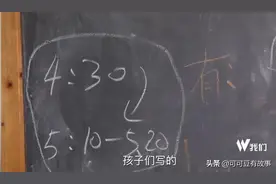 4:30
有:
5:10-5.20
W我们
孩子们写的
头条 @可可豆有故事